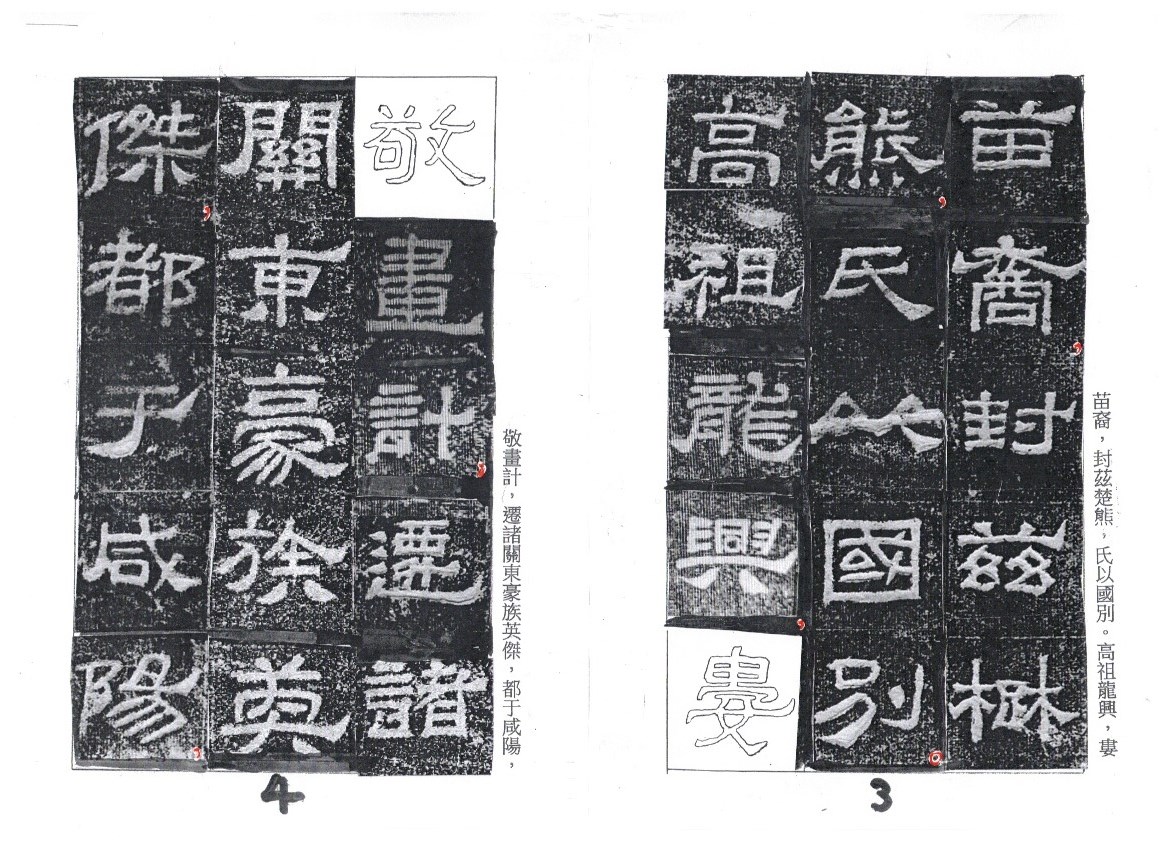 苗裔，封茲楚熊，氏以國別。高祖龍興，婁
苗裔，封茲楚
熊，氏以國別。
高祖龍興，婁
3
敬畫計，遷諸關東豪族英傑，都于咸陽，
敬畫計，遷諸
關東豪族英
傑，都于咸陽，
4